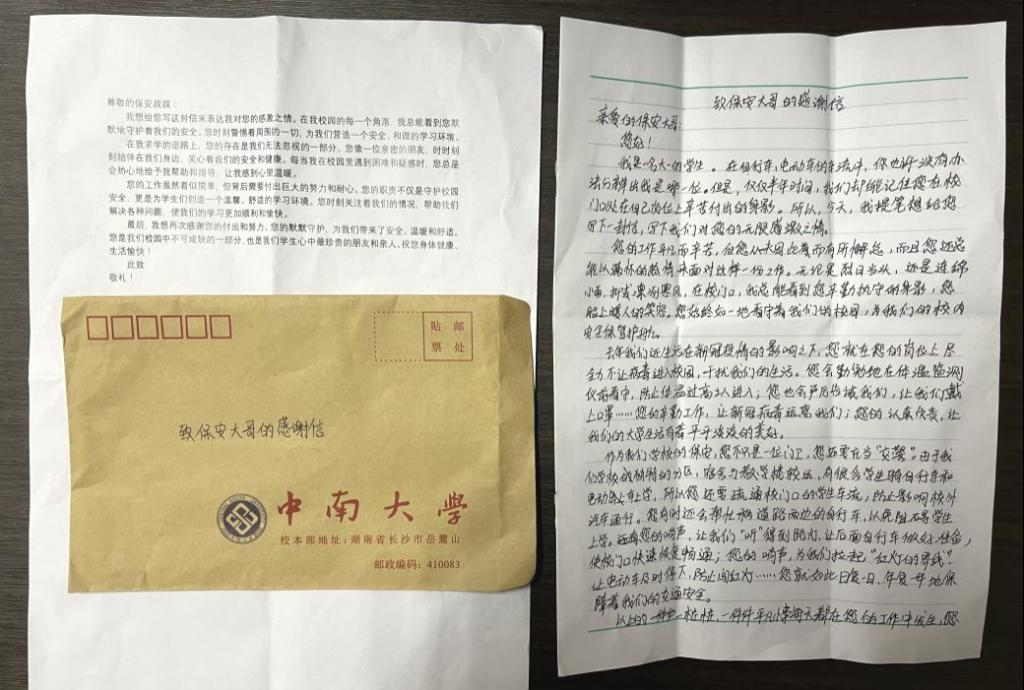 尊敬的保安叔叔：
我想给您写这封信来表达我对您的感激之情。在我校园的每一个角落，我总能看到您默
默地守护着我们的安全。您时刻警惕着周围的一切，为我们营造一个安全、和谐的学习环境。
在我求学的道路上，您的存在是我们无法忽视的一部分。您像一位亲密的朋友，时时刻
刻陪伴在我们身边，关心着我们的安全和健康。每当我在校园里遇到困难和疑惑时，您总是
会热心地给予我帮助和指导，让我感到心里温暖。
您的工作虽然看似简单，但背后需要付出巨大的努力和耐心。您的职责不仅是守护校园
安全，更是为学生们创造一个温馨、舒适的学习环境。您时刻关注着我们的情况，帮助我们
解决各种问题，使我们的学习更加顺利和愉快。
最后，我想再次感谢您的付出和努力。您的默默守护，为我们带来了安全、温暖和舒适。
您是我们校园中不可或缺的一部分，也是我们学生心中最珍贵的朋友和亲人。祝您身体健康、
生活愉快！
此致
敬礼！
贴 邮
票 处
致保安大哥的感谢信
中南大學
校本部地址：湖南省长沙市岳麓山
邮政编码：410083
致保安大哥的感谢信
亲爱的保安大哥：
您好！
我是一名大一的学生。在自行车、电动车的车流中，你也许没有办
法分辨出我是哪一位。但是，仅仅半年时间，我们却能记住您在校
门口处在自己岗位上辛苦付出的身影。所以，今天，我提笔想给您
写下一封信，写下我们对您的无限感激之情。
您的工作平凡而辛苦，但您从未因此而有所懈怠，而且您还总
能以满怀的热情来面对这样一份工作。无论是烈日当头，还是连绵
小雨，抑或凛冽寒风，在校门口，我总能看到您辛勤执守的身影，您
脸上暖人的笑容。您始终如一地看守着我们的校园，为我们的校内
安全保驾护航。
去年我们还生活在新冠疫情的影响之下，您就在您的岗位上尽
全力不让病毒进入校园，干扰我们的生活。您会勤勤地在体温监测
仪前看守，防止体温过高之人进入；您也会严厉告诫我们，让我们戴
上口罩……您的辛勤工作，让新冠病毒远离我们；您的认真负责，让
我们的大学生活有着平平淡淡的美好。
作为我们学校的保安，您不只是一位门卫，您还要充当“交警”。由于我
们学校的独特的分区，宿舍与教学楼较远，有很多学生骑自行车和
电动车上学，所以您还要疏通校门口的学生车流，防止影响校外
汽车通行。您有时还会帮忙挪道路两边的自行车，以免阻碍学生
上学。还有您的哨声，让我们“听”得到路灯，让后面自行车做好准备，
使校门口快速恢复畅通；您的哨声，为我们拉起“红灯的警线”
让电动车及时停下，防止闯红灯……您就如此日复一日、年复一年地保
障着我们的交通安全。
以上的一桩桩，一件件平凡小事每天都在您的工作中发生，您